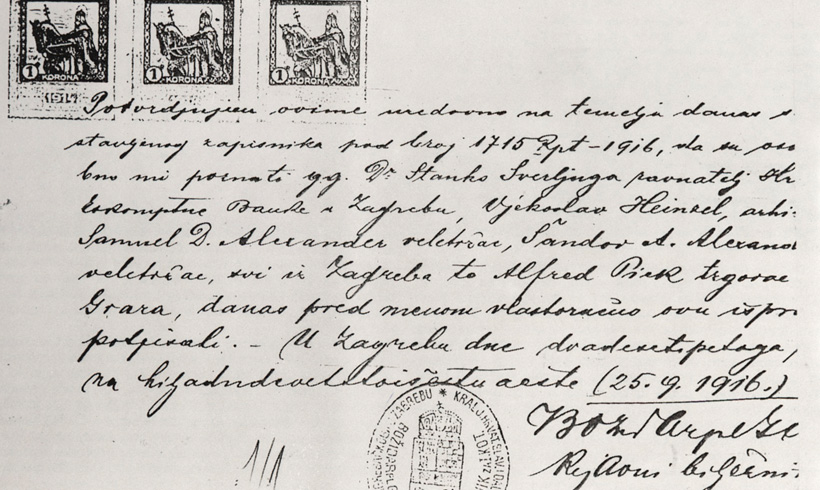 1 KORONA 1 KORONA 1 KORONA
1917
Potvrdjujem ovime uredovno na temelju danas s
stavljenog zapisnika pod broj 1715 Rpt-1916, da su oso
bno mi poznati gg. Dr Stanko Šverljuga ravnatelj Hr
Eskomptne Banke u Zagrebu, Vjekoslav Heinzel, arhi-
Samuel D. Alexander veletržac, Šandor A. Alexand
veletržac, svi iz Zagreba te Alfred Pick trgovac
Graza, danas pred menom vlastoručno ovu ispr
potpisali. – U Zagrebu dne dvadesetipetoga,
na hiljadudevetstoišestnaeste (25. 9. 1916.)
KRALJ. HRVATSKI
ZAGREBU *
kr. javni bilježni
1/1